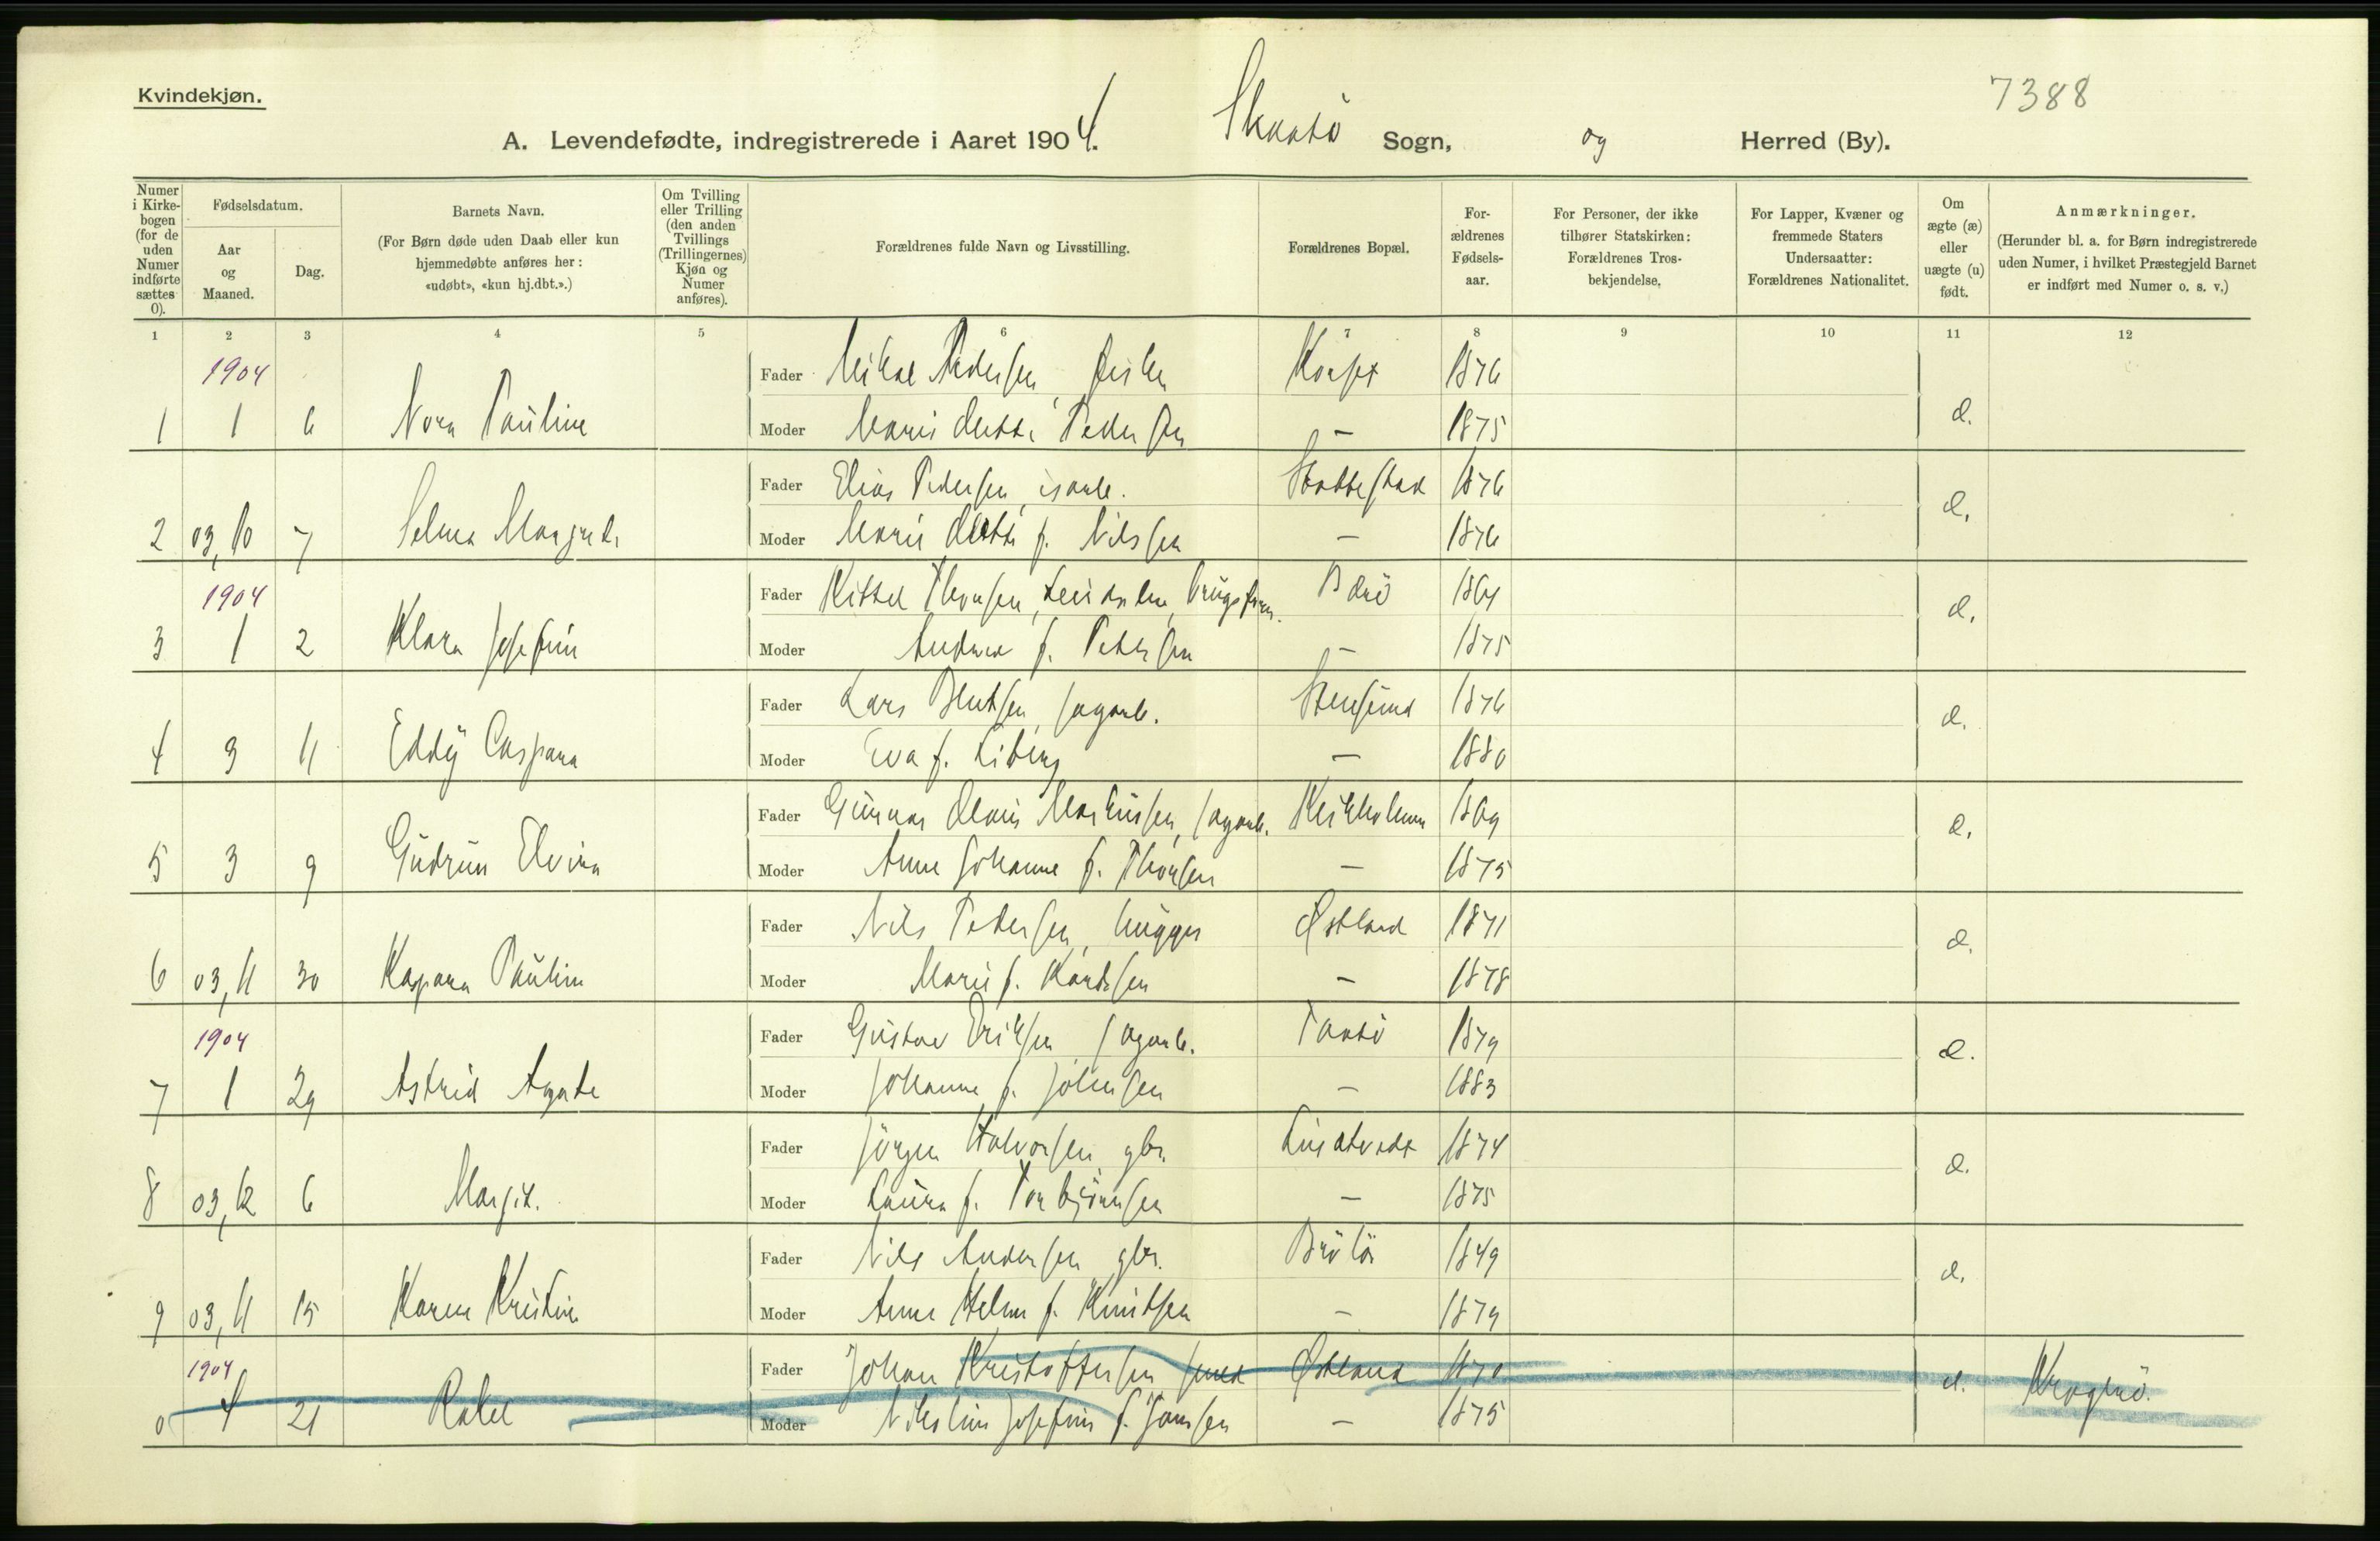 Kvindekjøn.
7388
A. Levendefødte, indregistrerede i Aaret 1904. Skaatö Sogn, og Herred (By).
Numer i Kirkebogen (for de uden Numer indførte sættes 0).
Fødselsdatum.
Aar og Maaned.
Dag.
Barnets Navn.
(For Børn døde uden Daab eller kun hjemmedøbte anføres her: «udøbt», «kun hj.dbt.».)
Om Tvilling eller Trilling (den anden Tvillings (Trillingernes) Kjøn og Numer anføres).
Forældrenes fulde Navn og Livsstilling.
Forældrenes Bopæl.
Forældrenes Fødselsaar.
For Personer, der ikke tilhører Statskirken: Forældrenes Trosbekjendelse.
For Lapper, Kvæner og fremmede Staters Undersaatter: Forældrenes Nationalitet.
Om ægte (æ) eller uægte (u) født.
Anmærkninger.
(Herunder bl. a. for Børn indregistrerede uden Numer, i hvilket Præstegjeld Barnet er indført med Numer o. s. v.)
1 2 3 4 5 6 7 8 9 10 11 12
1904 Fader Mikal Pedersen, fisker 1876
1 1 6 Nora Pauline Moder Marie Pedersen — 1875 æ.
Fader Elias Pedersen, isarb. Stabbestad 1876
2 03,10 7 Selma Margrete Moder Marie f. Nilssen — 1876 æ.
1904 Fader Kittel Thorsen, 1864
3 1 2 Klara Josefine Moder Andrea f. Pedersen — 1875 æ.
Fader Lars Berntsen, sagarb. Stensund 1876
4 3 11 Eddy Caspara Moder Eva f. Liberg — 1880 æ.
Fader Gunnar Olaus Markussen, sagarb. Kirkholmen 1869
5 3 9 Gudrun Elvira Moder Anne Johanne f. Thorsen — 1875 æ.
Fader Nils Pedersen, hugger Østland 1871
6 03,11 30 Kaspara Pauline Moder Marie f. — 1878 æ.
1904 Fader Gustav Eriksen sagarb. Taatö 1879
7 1 29 Astrid Agate Moder Johanne f. Johnsen — 1883 æ.
Fader Jörgen Halvorsen gbr. 1874
8 03,12 6 Margit. Moder Laura f. Torbjörnsen — 1875 æ.
Fader Nils Andersen gbr. 1849
9 03,11 15 Karen Kristine Moder Anne Helene f. Knutsen — 1879 æ.
1904 Fader Johan Kristoffersen smed Østland 1870
0 4 21 Rakel Moder Nikoline Josefine f. Jansen — 1875 æ. Kragerö.